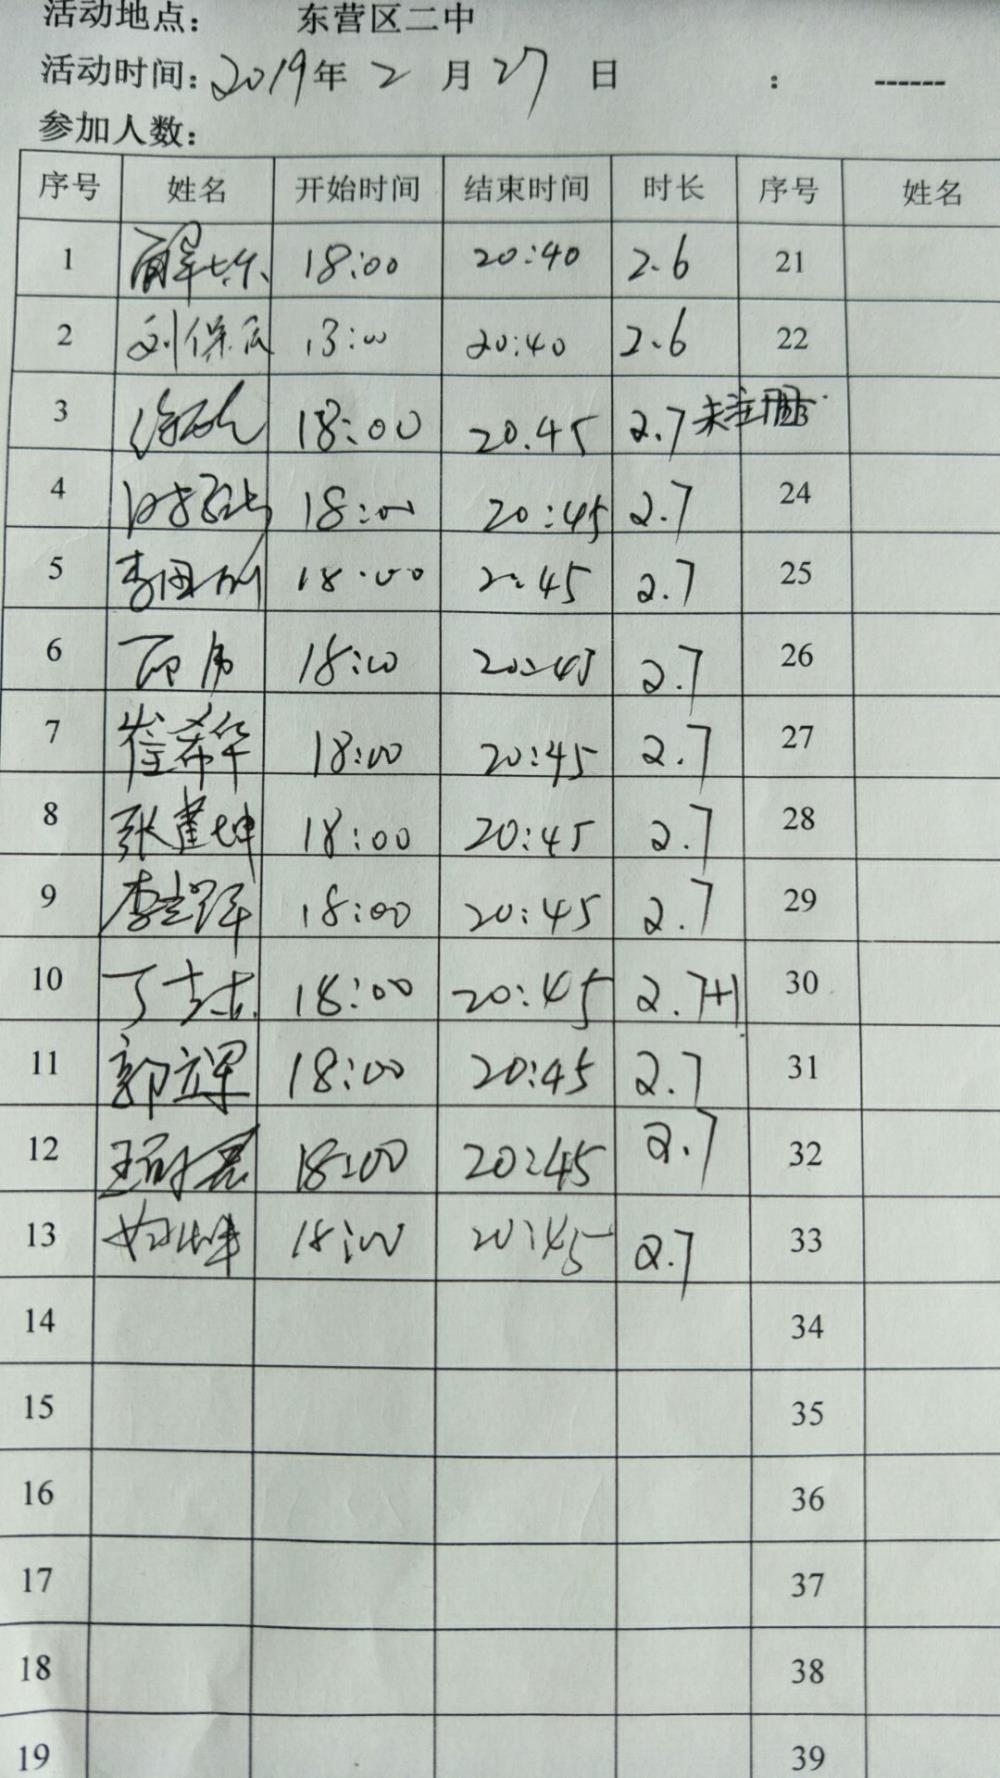 活动地点： 东营区二中
活动时间：2019年 2 月 27 日 ： ------
参加人数：
序号 姓名 开始时间 结束时间 时长 序号 姓名
1 18:00 20:40 2.6 21
2 刘保 13:00 20:40 2.6 22
3 18:00 20.45 2.7 未注册
4 18:00 20:45 2.7 24
5 李国 18:00 20:45 2.7 25
6 18:00 20:45 2.7 26
7 崔希华 18:00 20:45 2.7 27
8 张 坤 18:00 20:45 2.7 28
9 李 18:00 20:45 2.7 29
10 丁 18:00 20:45 2.7+1 30
11 郭 18:00 20:45 2.7 31
12 王 18:00 20:45 2.7 32
13 18:00 20:45 2.7 33
14 34
15 35
16 36
17 37
18 38
19 39